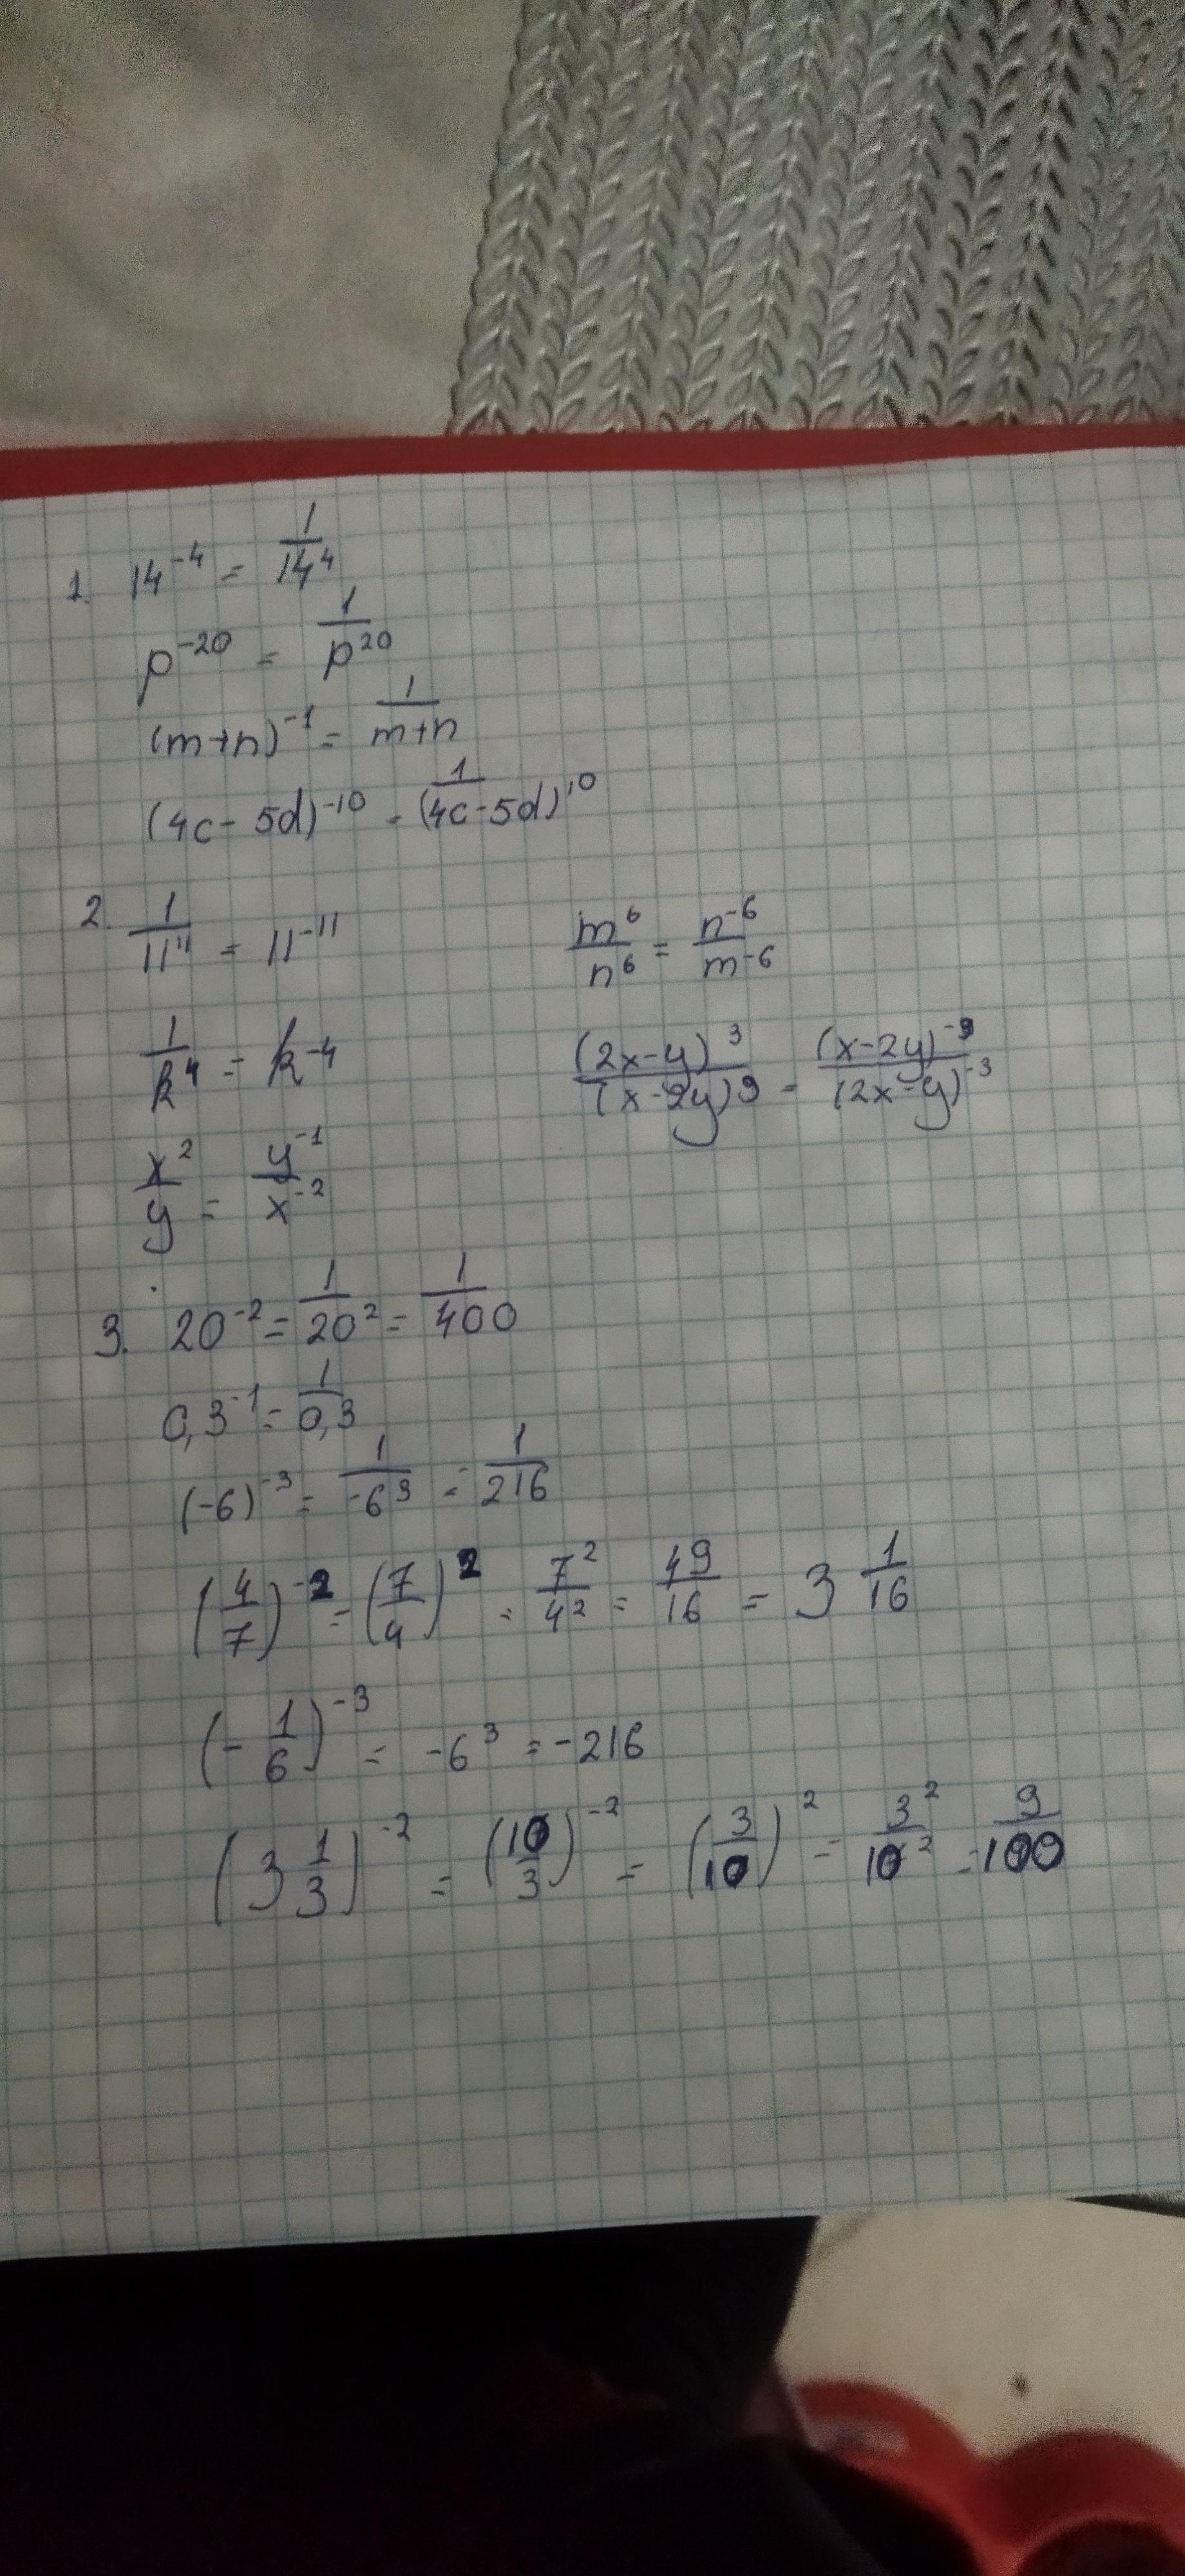 1. 14⁻⁴ = 1/14⁴
p⁻²⁰ = 1/p²⁰
(m+n)⁻¹ = 1/(m+n)
(4c - 5d)⁻¹⁰ = 1/(4c-5d)¹⁰
2. 1/11¹¹ = 11⁻¹¹ m⁶/n⁶ = n⁻⁶/m⁻⁶
1/k⁴ = k⁻⁴ (2x-y)³/(x-2y)⁹ = (x-2y)⁻⁹/(2x-y)⁻³
x²/y = y⁻¹/x⁻²
3. 20⁻² = 1/20² = 1/400
0,3⁻¹ = 1/0,3
(-6)⁻³ = 1/-6³ = 1/216
(4/7)⁻² = (7/4)² = 7²/4² = 49/16 = 3 1/16
(- 1/6)⁻³ = -6³ = -216
(3 1/3)⁻² = (10/3)⁻² = (3/10)² = 3²/10² = 9/100